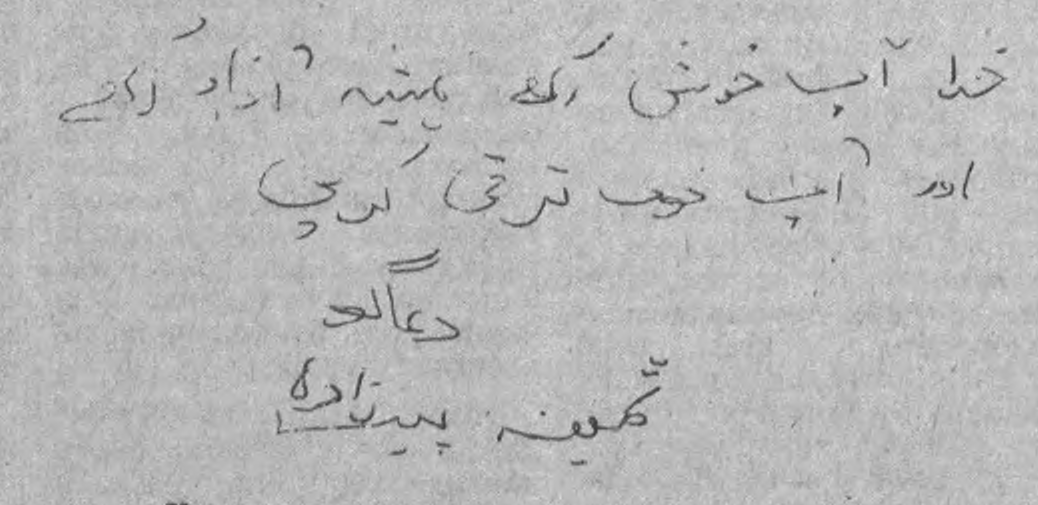 خدا آپ خوش رکھے ہمیشہ آزاد رکھے
اور آپ خوب ترقی کریں
دعاگو
پیرزادہ